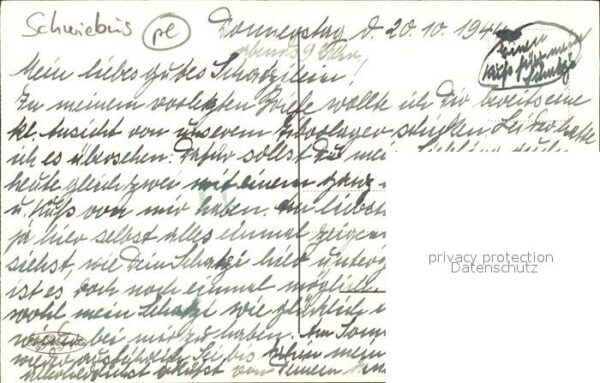 Schwiebus pl
Donnerstag d. 20.10.1944
abends 9 Uhr!
Einen
Kuß für meinen
Schatzi
Mein liebes gutes Schatzilein!
Zu meinem vorletzten Briefe wollte ich Dir bereits eine
kl. Ansicht von unserem schicken. Leider hatte
ich es übersehen. Dafür sollst Du mein Liebling
heute gleich zwei mit einem ganz
u. Kuß von mir haben. Am liebsten
ja hier selbst alles einmal zeigen
siehst, wie Dein Schatzi hier
ist es doch noch einmal möglich
wohl mein Schatzi wie glücklich
bei mir zu haben. Am Sonn
wieder ausführlich. Sei bis dahin mein
allerherzlichst geküßt von Deinem
privacy protection
Datenschutz